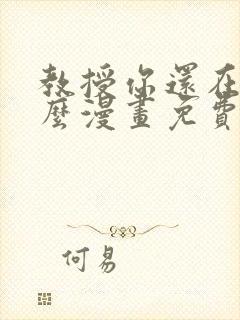 教授你還在
麼漫畫免費
何易